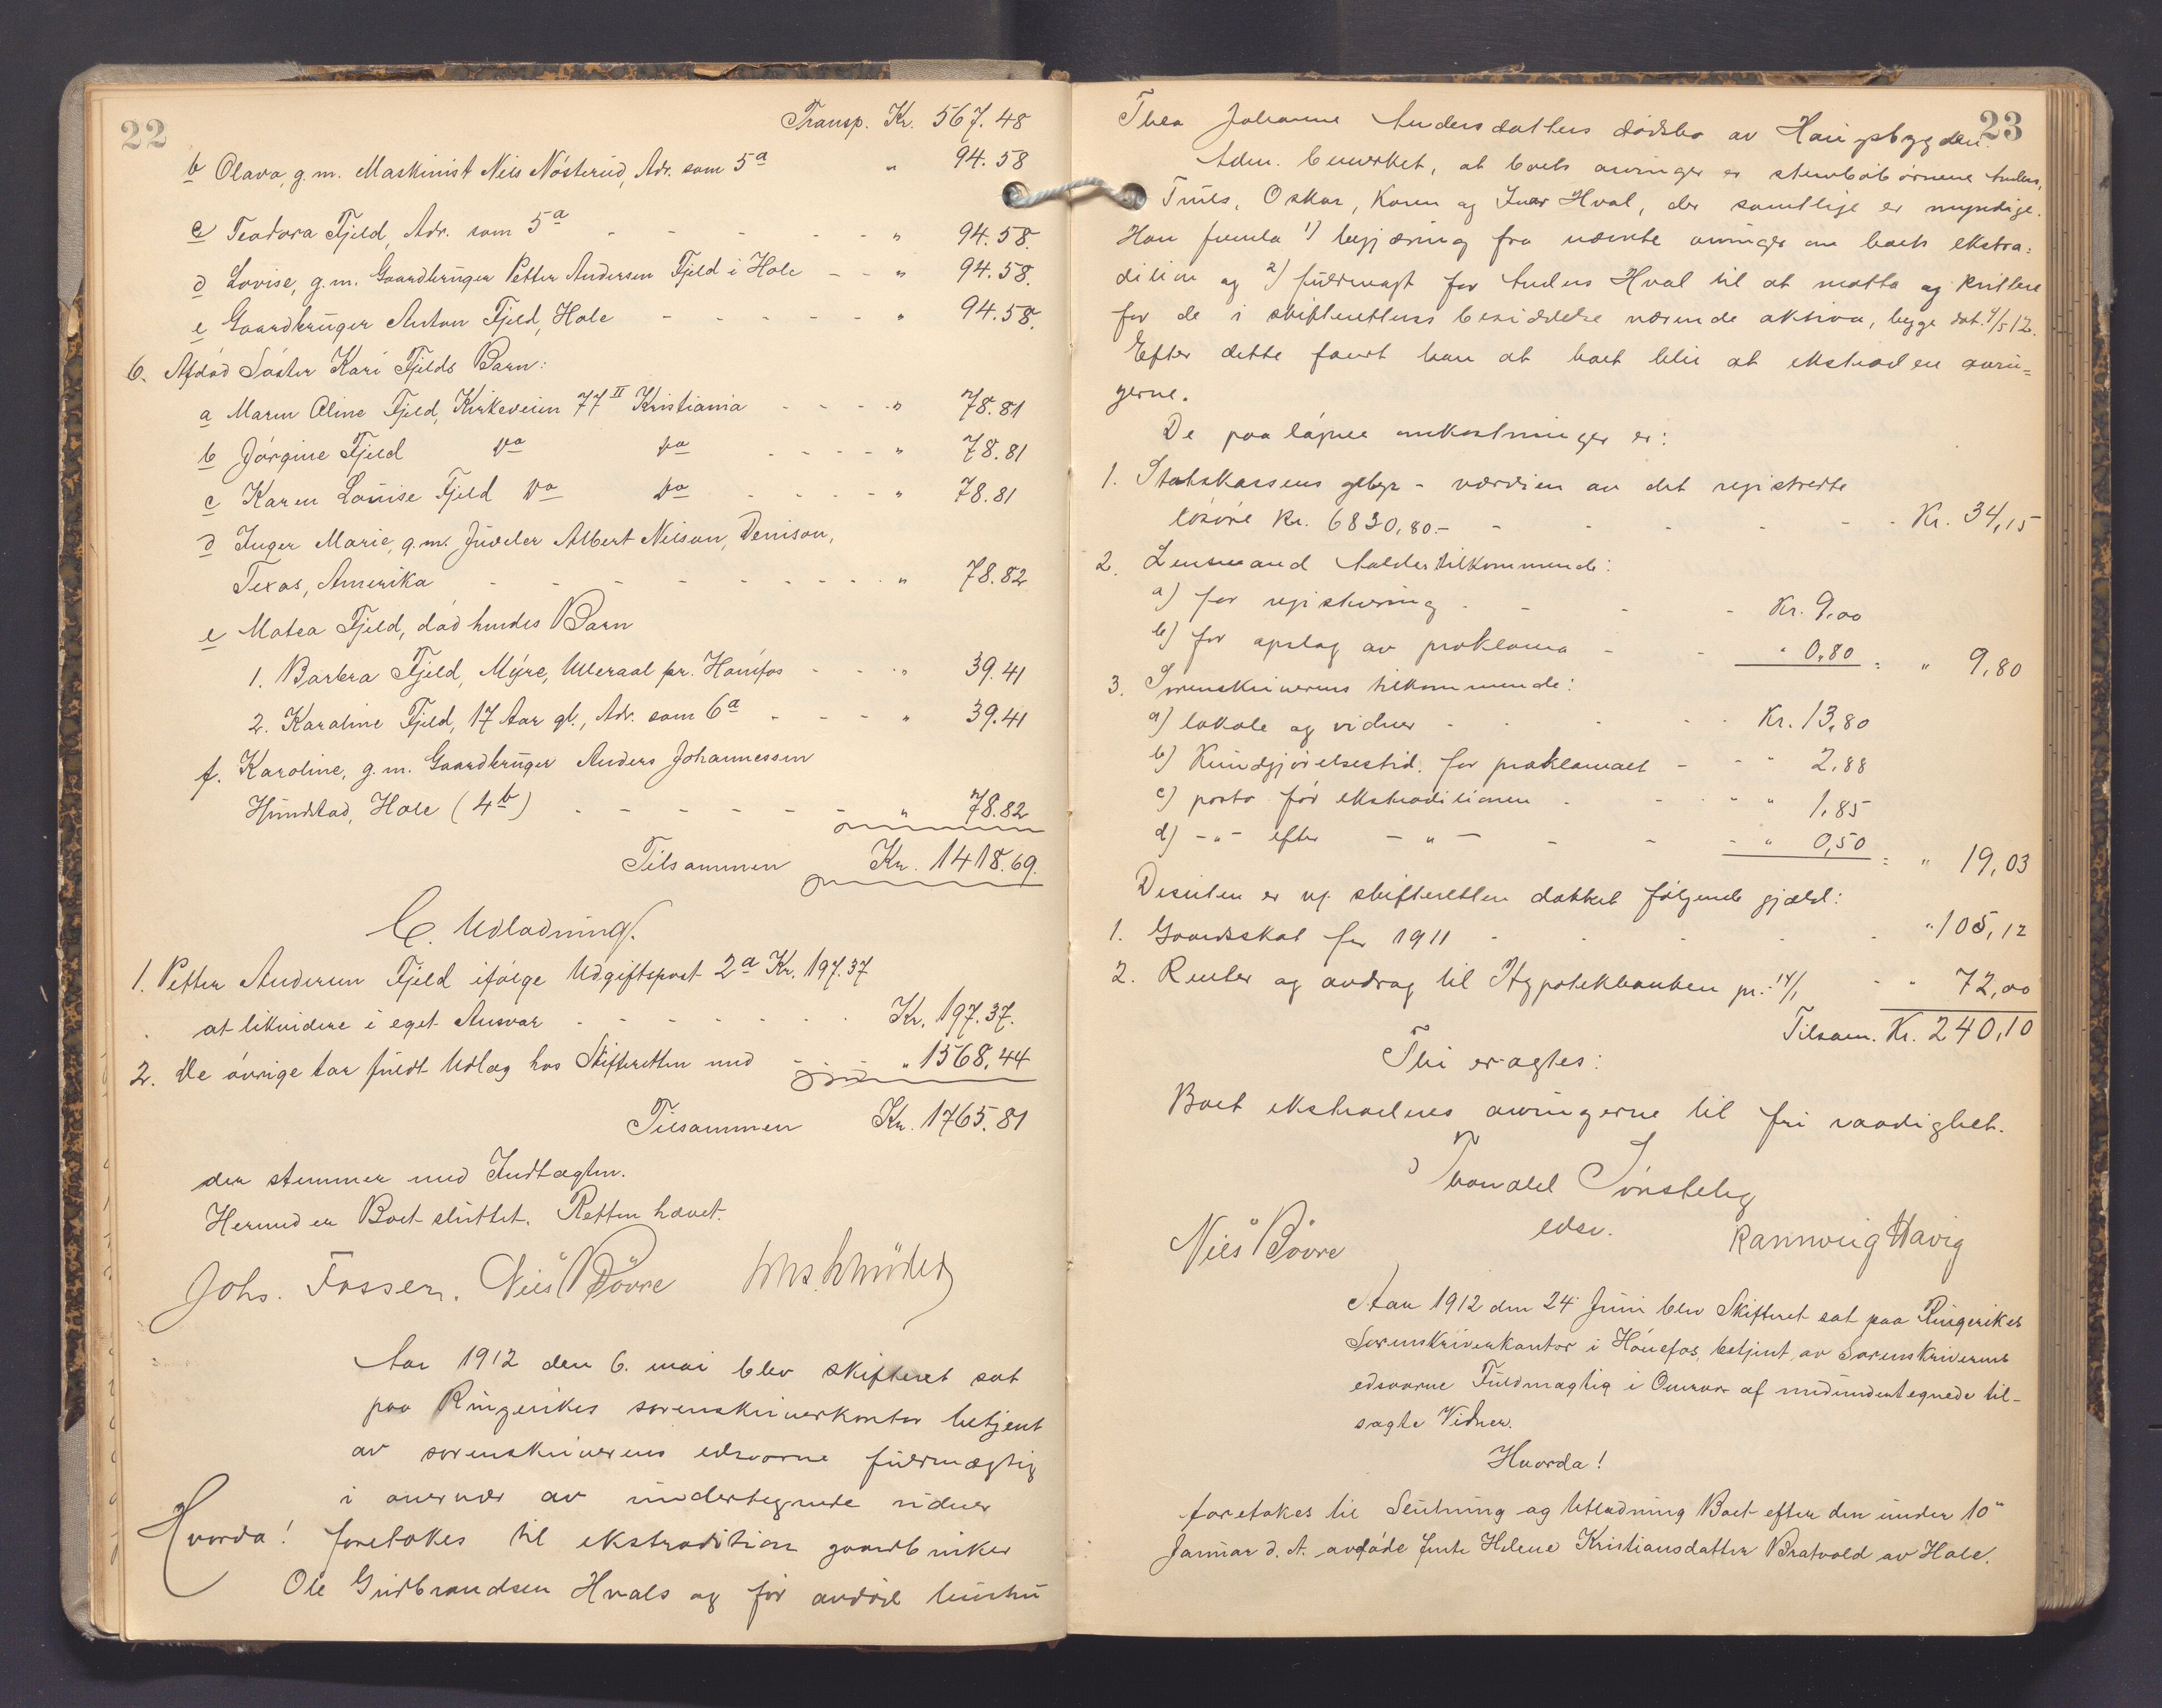 22
Transp. Kr. 567.48
b Olava, g.m. Maskinist Nils Nösterud, Adr. som 5a " 94.58
c Teodora Fjeld, Adr. som 5a - - - - - " 94.58.
d Lovise, g.m. Gaardbruger Petter Andersen Fjeld i Hole - - " 94.58.
e Gaardbruger Anton Fjeld, Hole - - - - - " 94.58.
6. Afdöd Söster Kari Fjelds Barn:
a Maren Oline Fjeld, Kirkeveien 77 II Kristiania - - - - " 78.81
b Jörgine Fjeld Do Do - - - - " 78.81
c Karen Louise Fjeld Do Do - - - - " 78.81
d Inger Marie, g.m. Juveler Albert Nilson, Denison,
Texas, Amerika - - - - - - - - " 78.82
e Matea Fjeld, död hendes Barn
1. Barbra Fjeld, Myre, Ulleraal pr. Hönefos - - - " 39.41
2. Karoline Fjeld, 17 Aar gl., Adr. som 6a - - - " 39.41
f. Karoline, g.m. Gaardbruger Anders Johannessen
Hundstad, Hole (4b) - - - - - - " 78.82
Tilsammen Kr. 1418.69.
C. Udlodning.
1. Petter Andersen Fjeld ifölge Udgiftspost 2a Kr. 197.37
at likvidere i eget Ansvar - - - - - - - Kr. 197.37.
2. De övrige tar fuldt Udlæg hos Skifteretten med - - - " 1568.44
Tilsammen Kr. 1765.81
der stemmer med Indtægten.
Hermed er Boet sluttet. Retten hævet.
Johs. Fossen. Nils Bövre
Aar 1912 den 6. mai blev skifteret sat
paa Ringerikes sorenskriverkontor betjent
av sorenskriverens edsvorne fuldmægtig
i overvær av undertegnede vidner
Hvorda! foretokes til ekstradition gaardbruker
Ole Gudbrandsen Hvals og før avdøde hustru
23
Thea Johanne Andersdatters dødsbo av Haugsbygden.
Adm. bemerket, at boets arvinger er stervbobørnene Anders,
Truls, Oskar, Karen og Ivar Hval, der samtlige er myndige.
Han fremla 1) begjæring fra nævnte arvinger om boets ekstra-
dition og 2) fuldmagt for Anders Hval til at motta og kvittere
for de i skifterettens besiddelse værende aktiva, begge dat. 4/5 12.
Efter dette fandt han at boet blir at ekstradere arvin=
gerne.
De paaløpne omkostninger er:
1. Statskassens gebyr - værdien av det registrerte
løsøre Kr. 6830,80.- - - - - - Kr. 34,15
2. Lensmand Aalders tilkommende:
a) for registrering - - - - Kr. 9,00
b) for opslag av proklama - - " 0,80 = " 9,80
3. Sorenskriverens tilkommende:
a) lokale og vidner - - - - Kr. 13,80
b) Kundgjørelsestid. for proklamaet - - " 2,88
c) porto før ekstraditionen - - - " 1,85
d) -"- efter -"- - - - " 0,50 = " 19,03
Desuten er ved skifteretten dækket følgende gjæld:
1. Gaardsskat for 1911 - - - - - " 105,12
2. Renter og avdrag til Hypotekbanken pr. 14/1 - - 72,00
Tilsam. Kr. 240,10
Thi eragtes:
Boet ekstraderes arvingerne til fri raadighet.
Thorvald Tønsteby
edsv.
Nils Bövre Rannveig Havig
Aar 1912 den 24 Juni blev Skifteret sat paa Ringerikes
Sorenskriverkontor i Hönefos, betjent av Sorenskriverens
edsvorne Fuldmægtig i Overvær af medundertegnede til-
sagte Vidner.
Hvorda!
foretokes til Slutning og Utlodning Boet efter den under 10
Januar d. A. avdöde Jente Helene Kristiansdatter Bratvold av Hole.